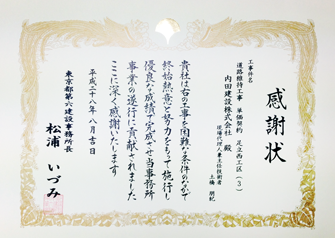 感謝状
工事件名
道路維持工事 単価契約 足立西工区(3)
内田建設株式会社 殿
現場代理人兼主任技術者
土橋 朋紀
貴社は右の工事を困難な条件のなかで
終始熱意と努力をもって施行し
優良な成績で完成させ当事務所
事業の遂行に貢献されました
ここに深く感謝いたします
平成二十八年八月吉日
東京都第六建設事務所長
松浦 いづみ